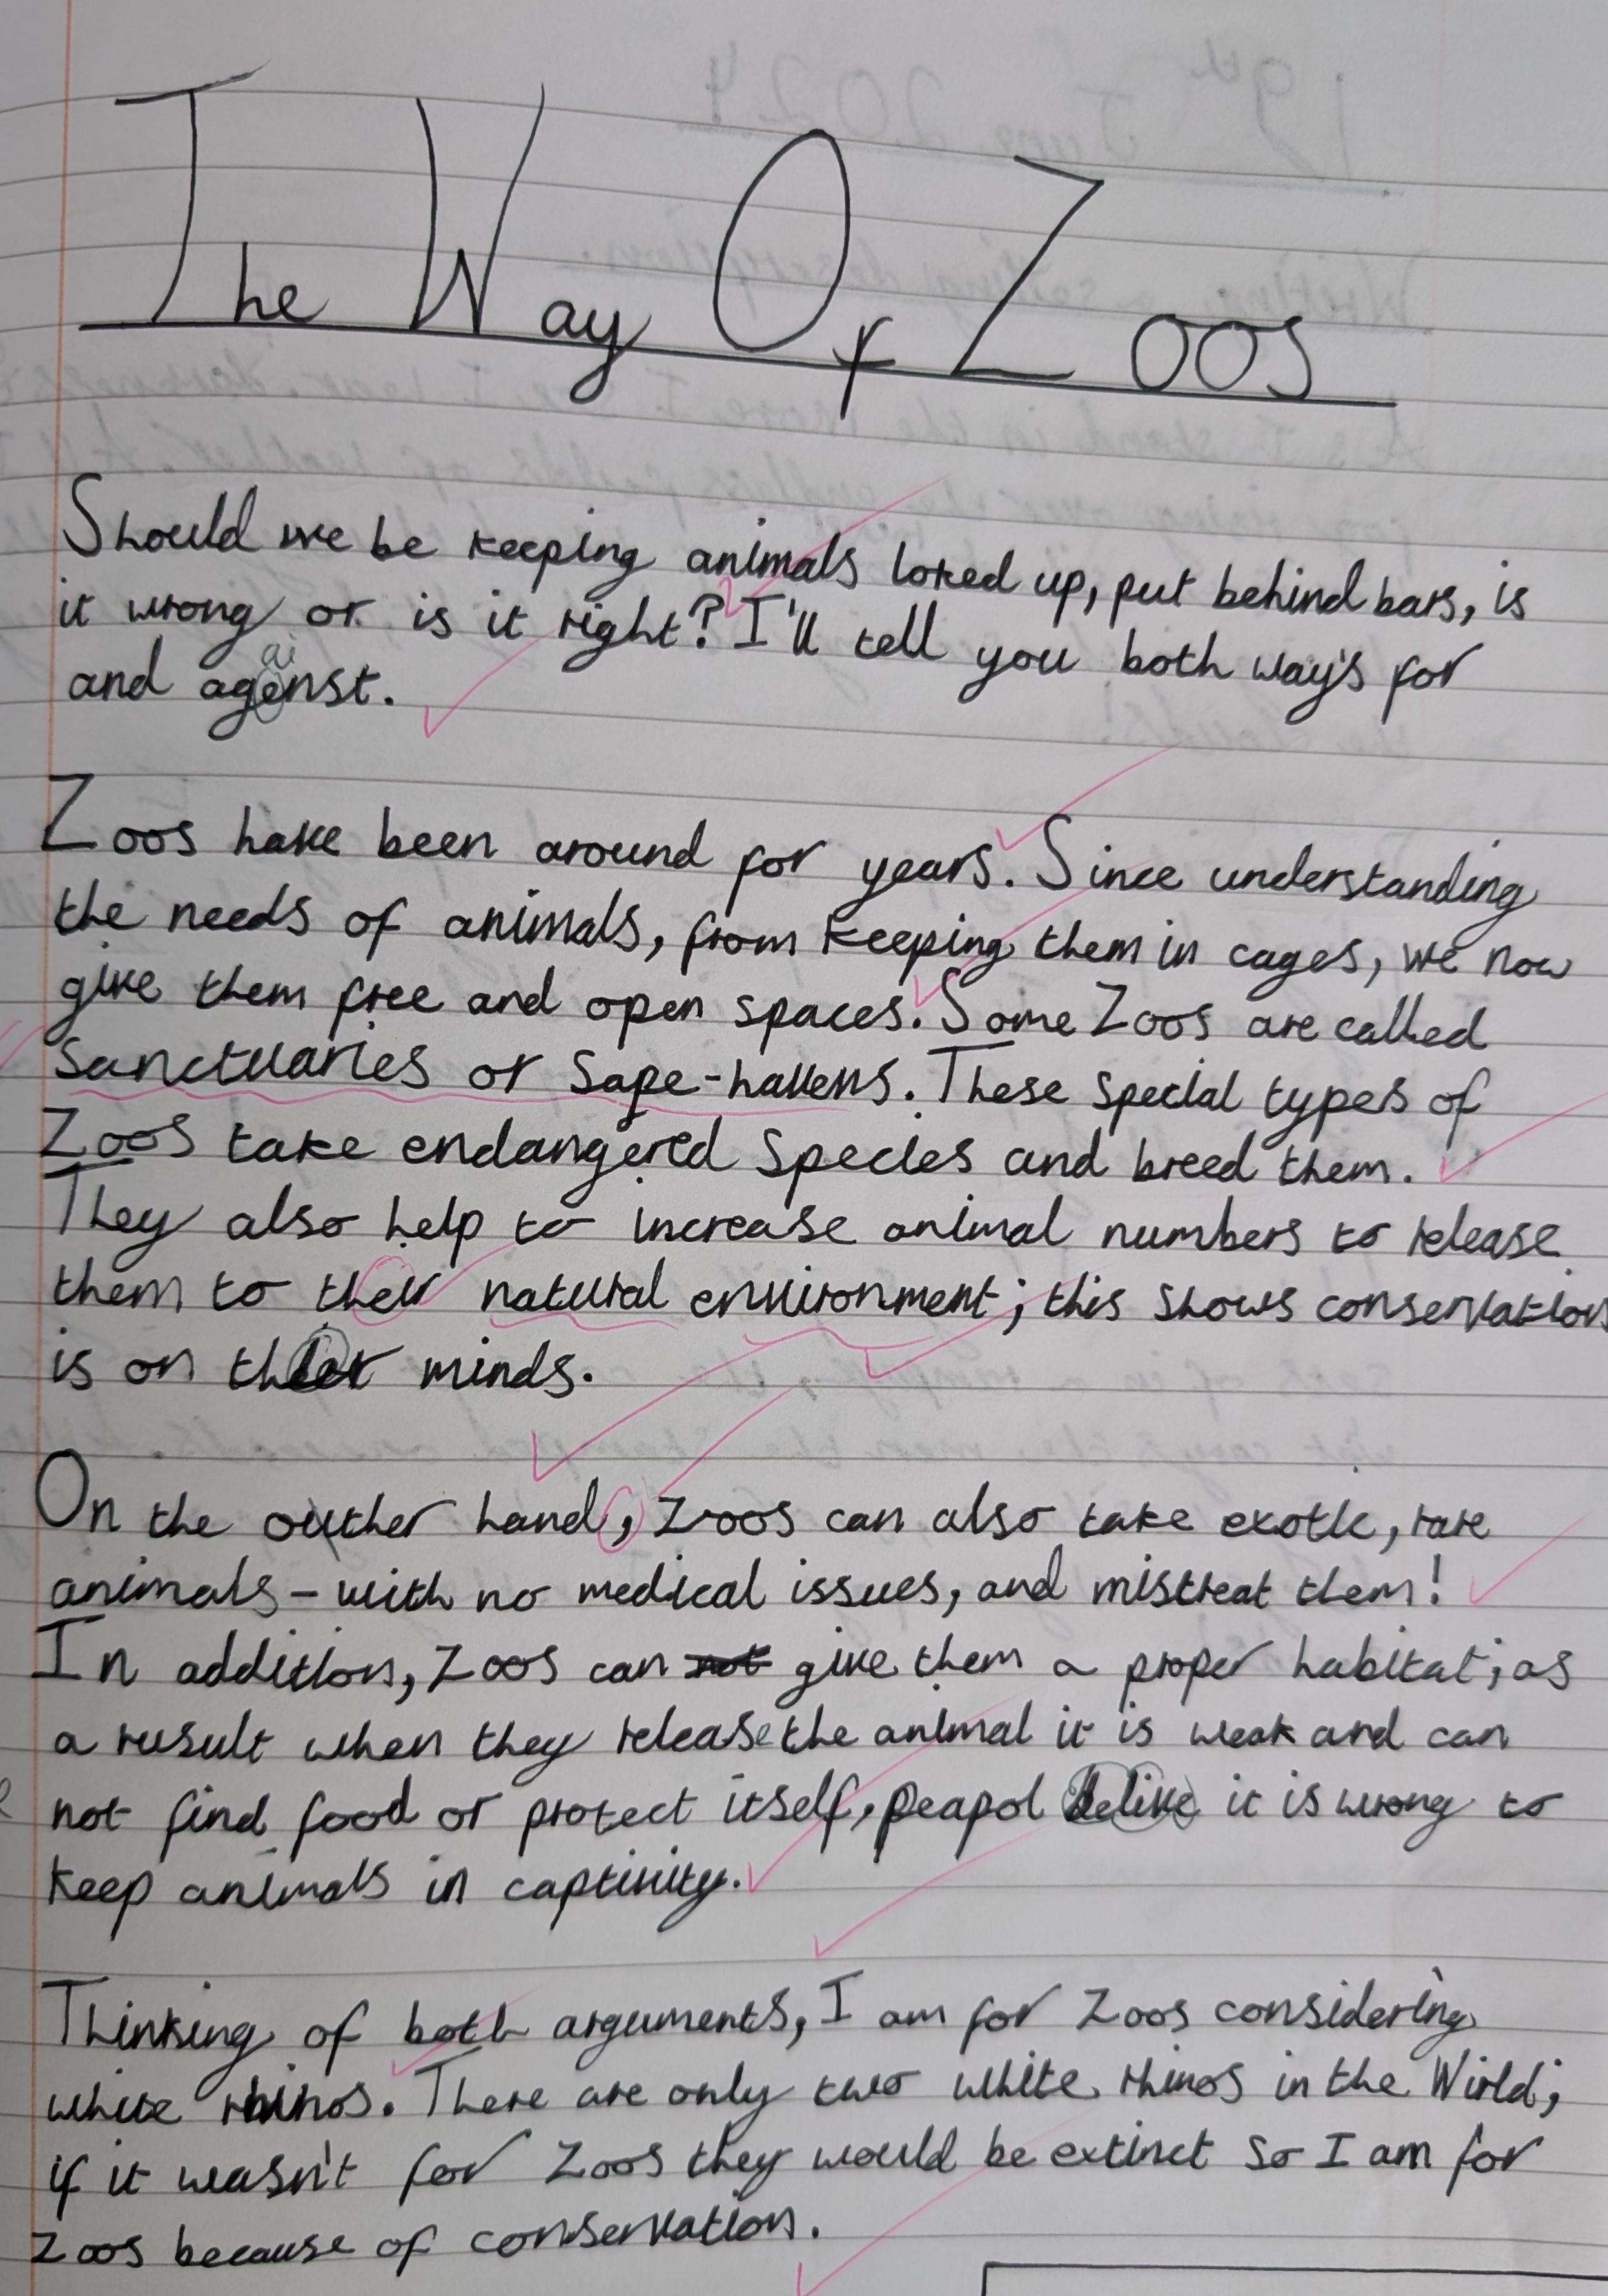 The Way Of Zoos
Should we be keeping animals loked up, put behind bars, is
it wrong or is it right? I'll tell you both way's for
and against.
Zoos have been around for years. Since understanding
the needs of animals, from keeping them in cages, we now
give them free and open spaces. Some Zoos are called
Sanctuaries or Safe-havens. These special types of
Zoos take endangered species and breed them.
They also help to increase animal numbers to release
them to their natural environment; this shows conservation
is on their minds.
On the outher hand, Zoos can also take exotic, rare
animals - with no medical issues, and mistreat them!
In addition, Zoos can not give them a proper habitat; as
a result when they release the animal it is weak and can
not find food or protect itself, peapol belive it is wrong to
keep animals in captivity.
Thinking of both arguments, I am for Zoos considering
white rhinos. There are only two white rhinos in the Wirld;
if it wasn't for Zoos they would be extinct so I am for
Zoos because of conservation.